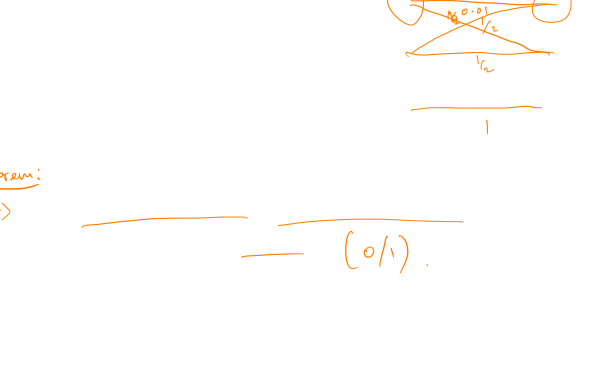 0.01
1/2
1/2
1
orem:
(0/1).